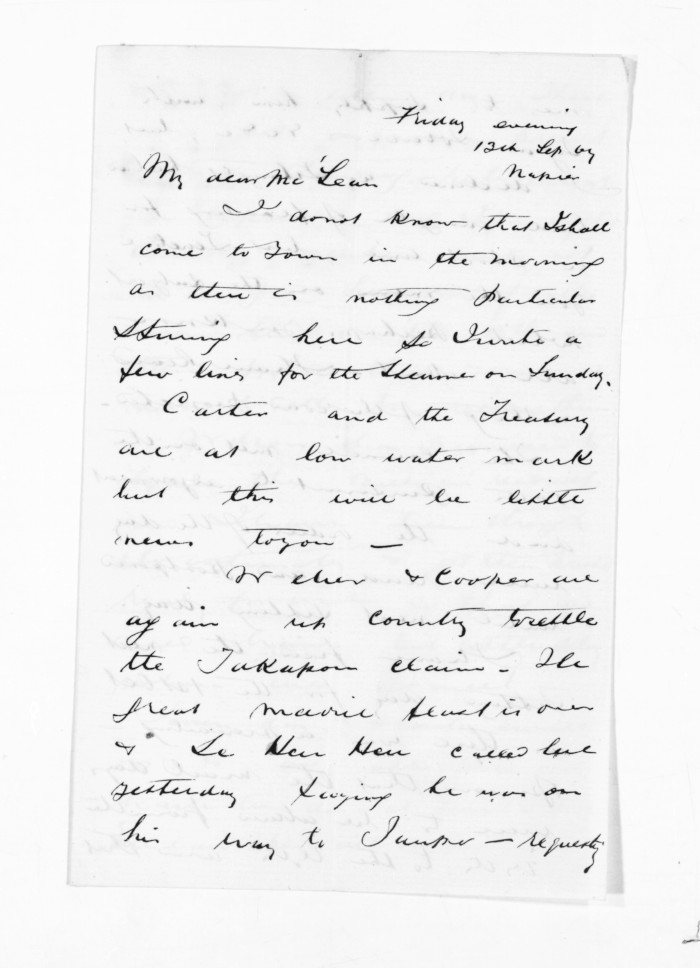 Friday evening
13th Sep 67
Napier
My dear McLean
I do not know that I shall
come to Town in the morning
as there is nothing particular
stirring here so I write a
few lines for the Steamer on Sunday.
Carter and the Treasury
are at low water mark
but this will be little
news to you —
Weber & Cooper are
again up country to settle
the Takapau claim - The
great maorie feast is over
& Te Heu Heu called here
yesterday saying he was on
his way to Taupo — requesty